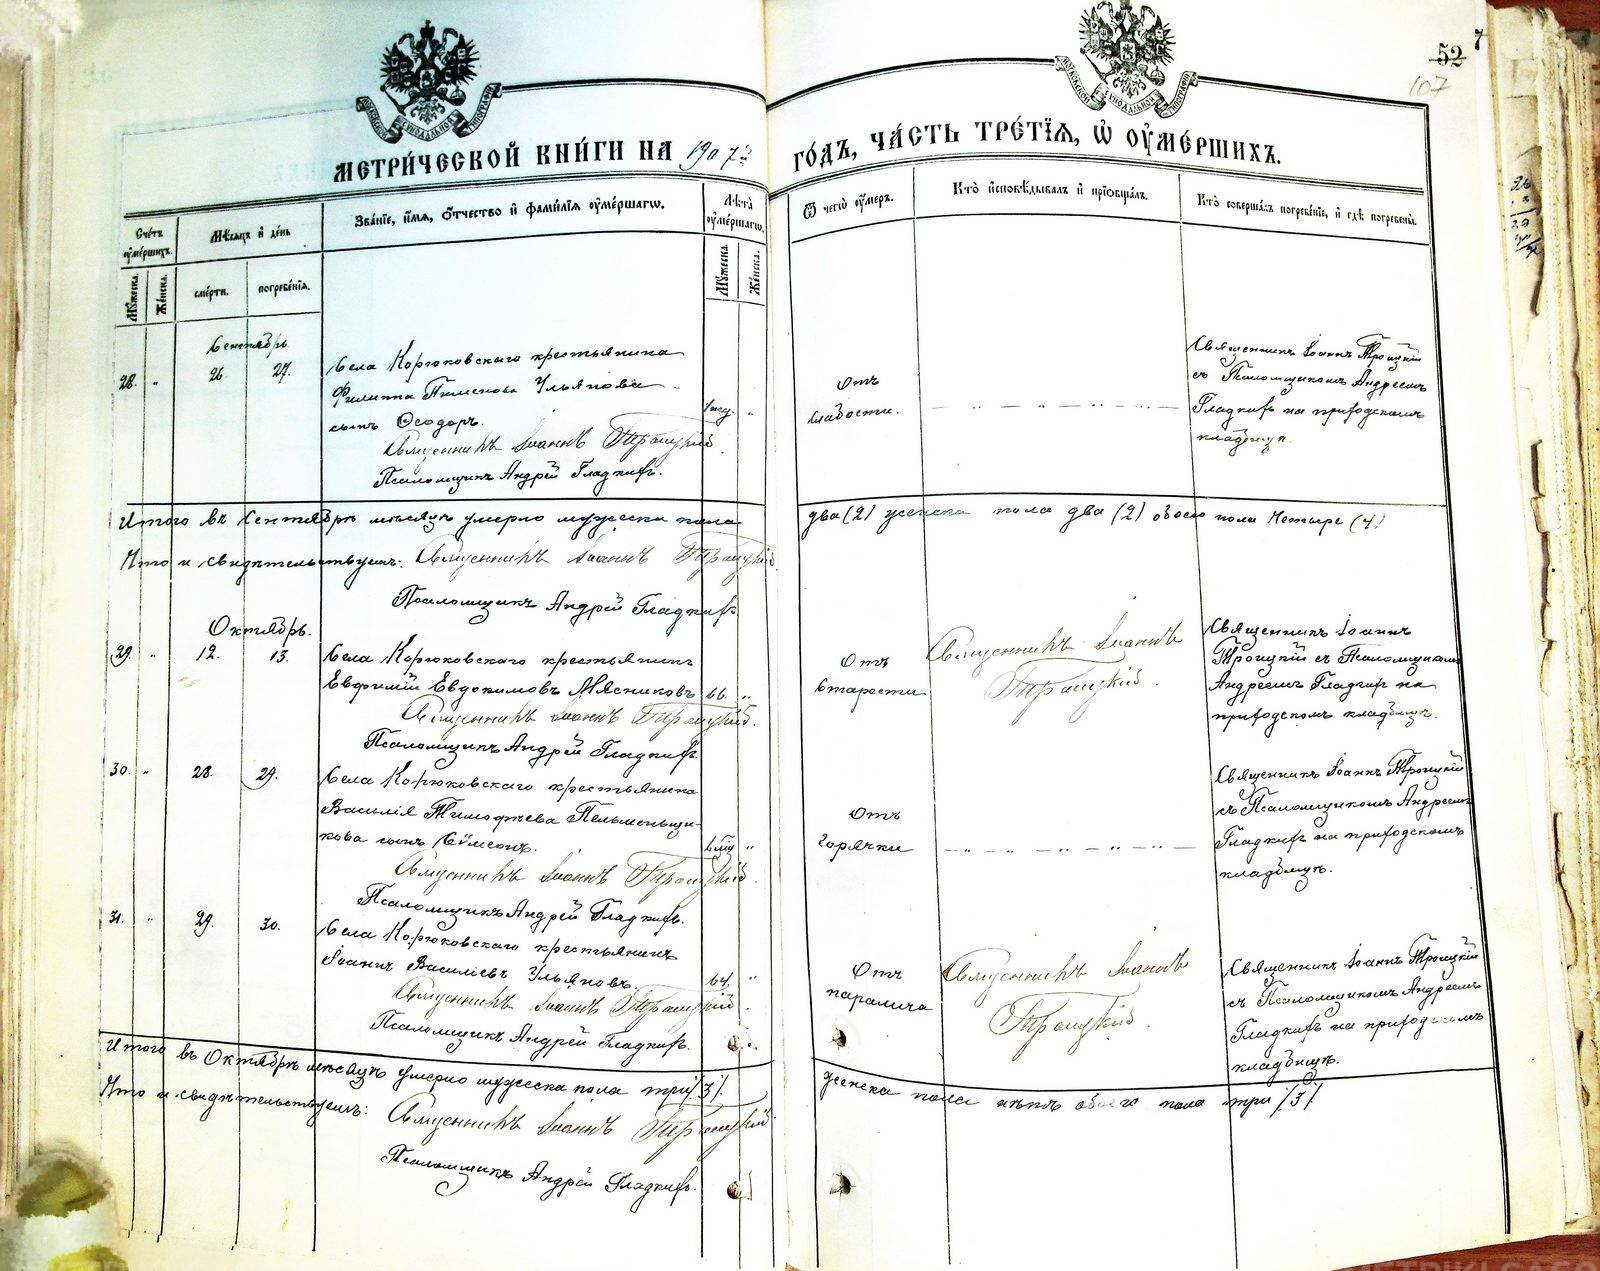 52
7
107
МОСКОВСКОЙ СѴНОДАЛЬНОЙ ТИПОГРАФІИ
МОСКОВСКОЙ СѴНОДАЛЬНОЙ ТИПОГРАФІИ
МЕТРИ́ЧЕСКОЙ КНИ́ГИ НА 1907й ГО́ДЪ, ЧА́СТЬ ТРЕ́ТІЯ, Ѡ҆ ОУ҆МЕ́РШИХЪ.
Сче́тъ оу҆ме́ршихъ.
Мѣ́сяцъ и҆ де́нь
Зва́ніе, и҆́мя, ѻ҆́тчество и҆ фами́лія оу҆ме́ршагѡ.
Лѣ́та оу҆ме́ршагѡ.
Ѿ чегѡ̀ оу҆́меръ.
Кто̀ и҆сповѣ́дывалъ и҆ прїѡбща́лъ.
Кто̀ соверша́лъ погребе́ніе, и҆ гдѣ̀ погребены̀.
Му́жеска. Же́нска. сме́рти. погребе́нія. Му́жеска. Же́нска.
Сентябрь
28. " 26. 27.
Села Корюковскаго крестьянина
Филиппа Пименова Ульянова
сынъ Ѳеодоръ.
"
Священникъ Іоаннъ Троицкій.
Псаломщикъ Андрей Гладкихъ.
Отъ
слабости.
Священникъ Іоаннъ Троицкій
съ Псаломщикомъ Андреемъ
Гладкихъ на приходскомъ
кладбищѣ.
Итого въ Сентябрѣ мѣсяцѣ умерло мужеска пола два (2) женска пола два (2) обоего пола Четыре (4)
Что и свидѣтельствуемъ: Священникъ Іоаннъ Троицкій.
Псаломщикъ Андрей Гладкихъ.
Октябрь.
29. " 12. 13.
Села Корюковскаго крестьянинъ
Евфимій Евдокимовъ Мясниковъ 66. "
Священникъ Іоаннъ Троицкій.
Псаломщикъ Андрей Гладкихъ.
Отъ
старости
Священникъ Іоаннъ
Троицкій.
Священникъ Іоаннъ
Троицкій съ Псаломщикомъ
Андреемъ Гладкихъ на
приходскомъ кладбищѣ.
30. " 28. 29.
Села Корюковскаго крестьянина
Василія Тимофѣева Пельменьщи-
кова сынъ Сѵмеонъ.
"
Священникъ Іоаннъ Троицкій.
Псаломщикъ Андрей Гладкихъ.
Отъ
горячки
Священникъ Іоаннъ Троицкій
съ Псаломщикомъ Андреемъ
Гладкихъ на приходскомъ
кладбищѣ.
31. " 29. 30.
Села Корюковскаго крестьянинъ
Іоаннъ Василіевъ Ульяновъ. 64. "
Священникъ Іоаннъ Троицкій.
Псаломщикъ Андрей Гладкихъ.
Отъ
паралича
Священникъ Іоаннъ
Троицкій.
Священникъ Іоаннъ Троицкій
съ Псаломщикомъ Андреемъ
Гладкихъ на приходскомъ
кладбищѣ.
Итого въ Октябрѣ мѣсяцѣ умерло мужеска пола три (3). женска пола нѣтъ обоего пола три (3)
Что и свидѣтельствуемъ: Священникъ Іоаннъ Троицкій
Псаломщикъ Андрей Гладкихъ.